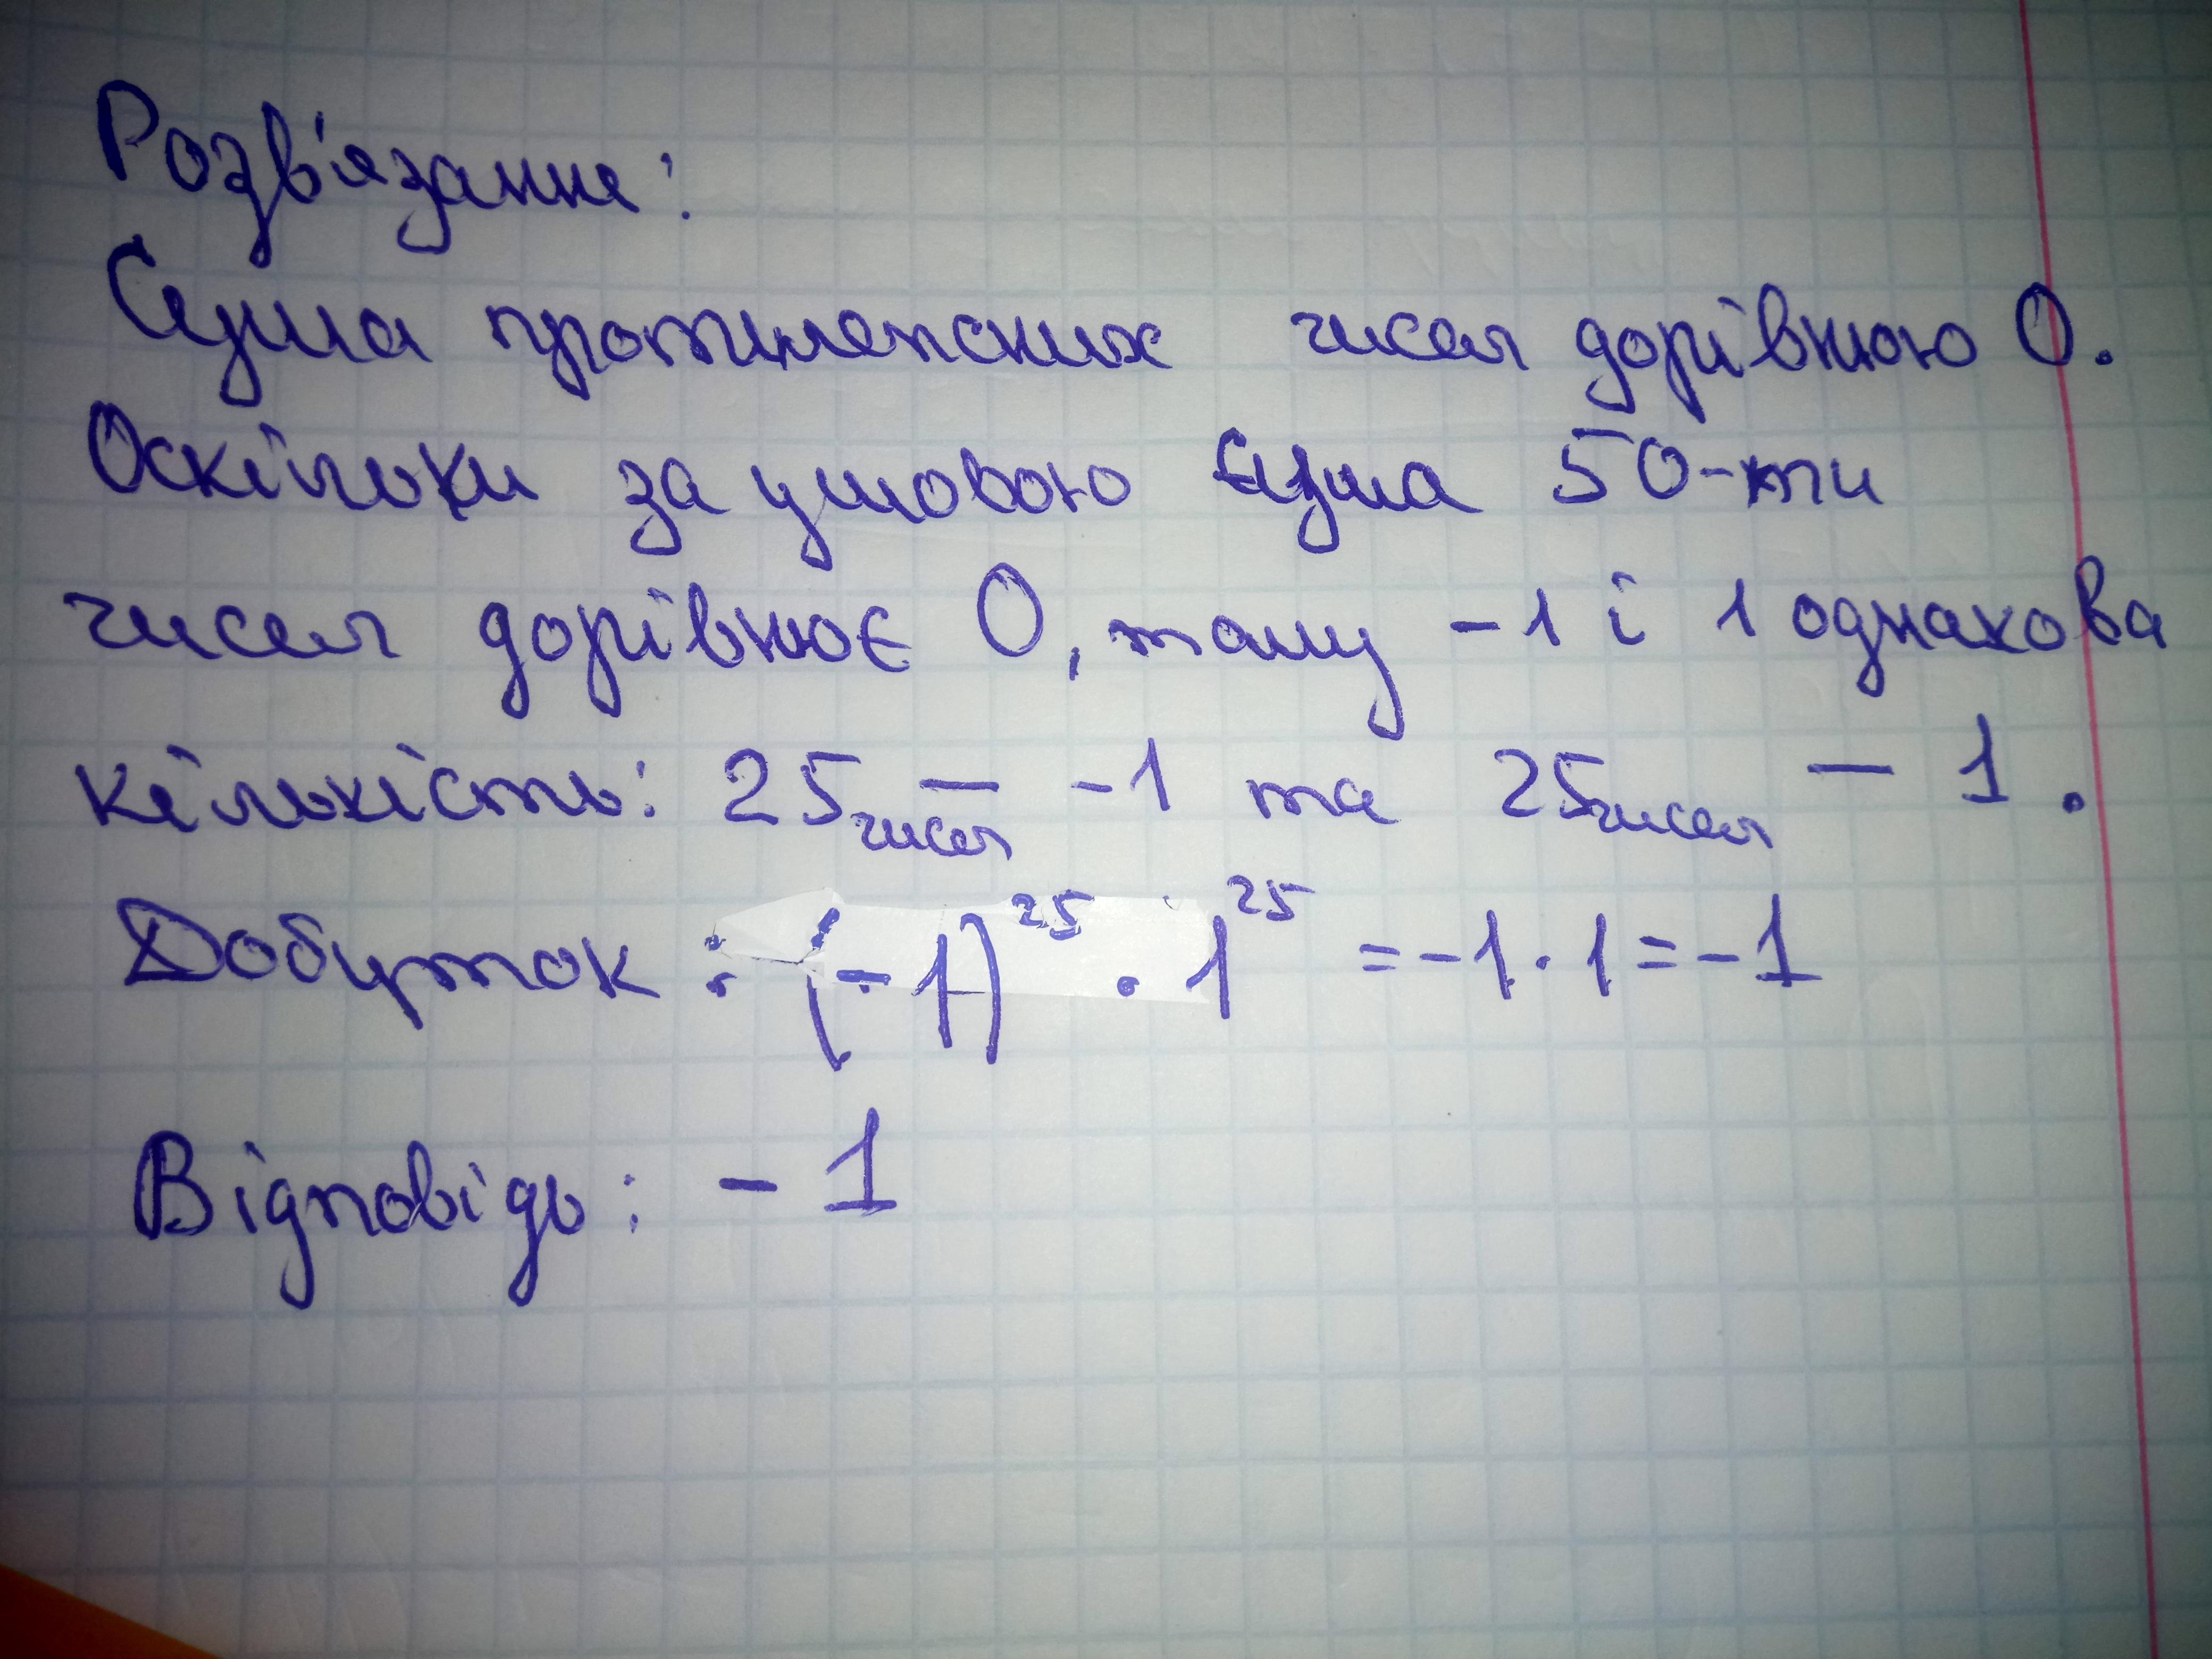 Розв'язання:
Сума протилежних чисел дорівнюю 0.
Оскільки за умовою сума 50-ти
чисел дорівнює 0, тому -1 і 1 однакова
кількість: 25 чисел — -1 та 25 чисел — 1.
Добуток : (-1)²⁵ · 1²⁵ = -1 · 1 = -1
Відповідь: - 1